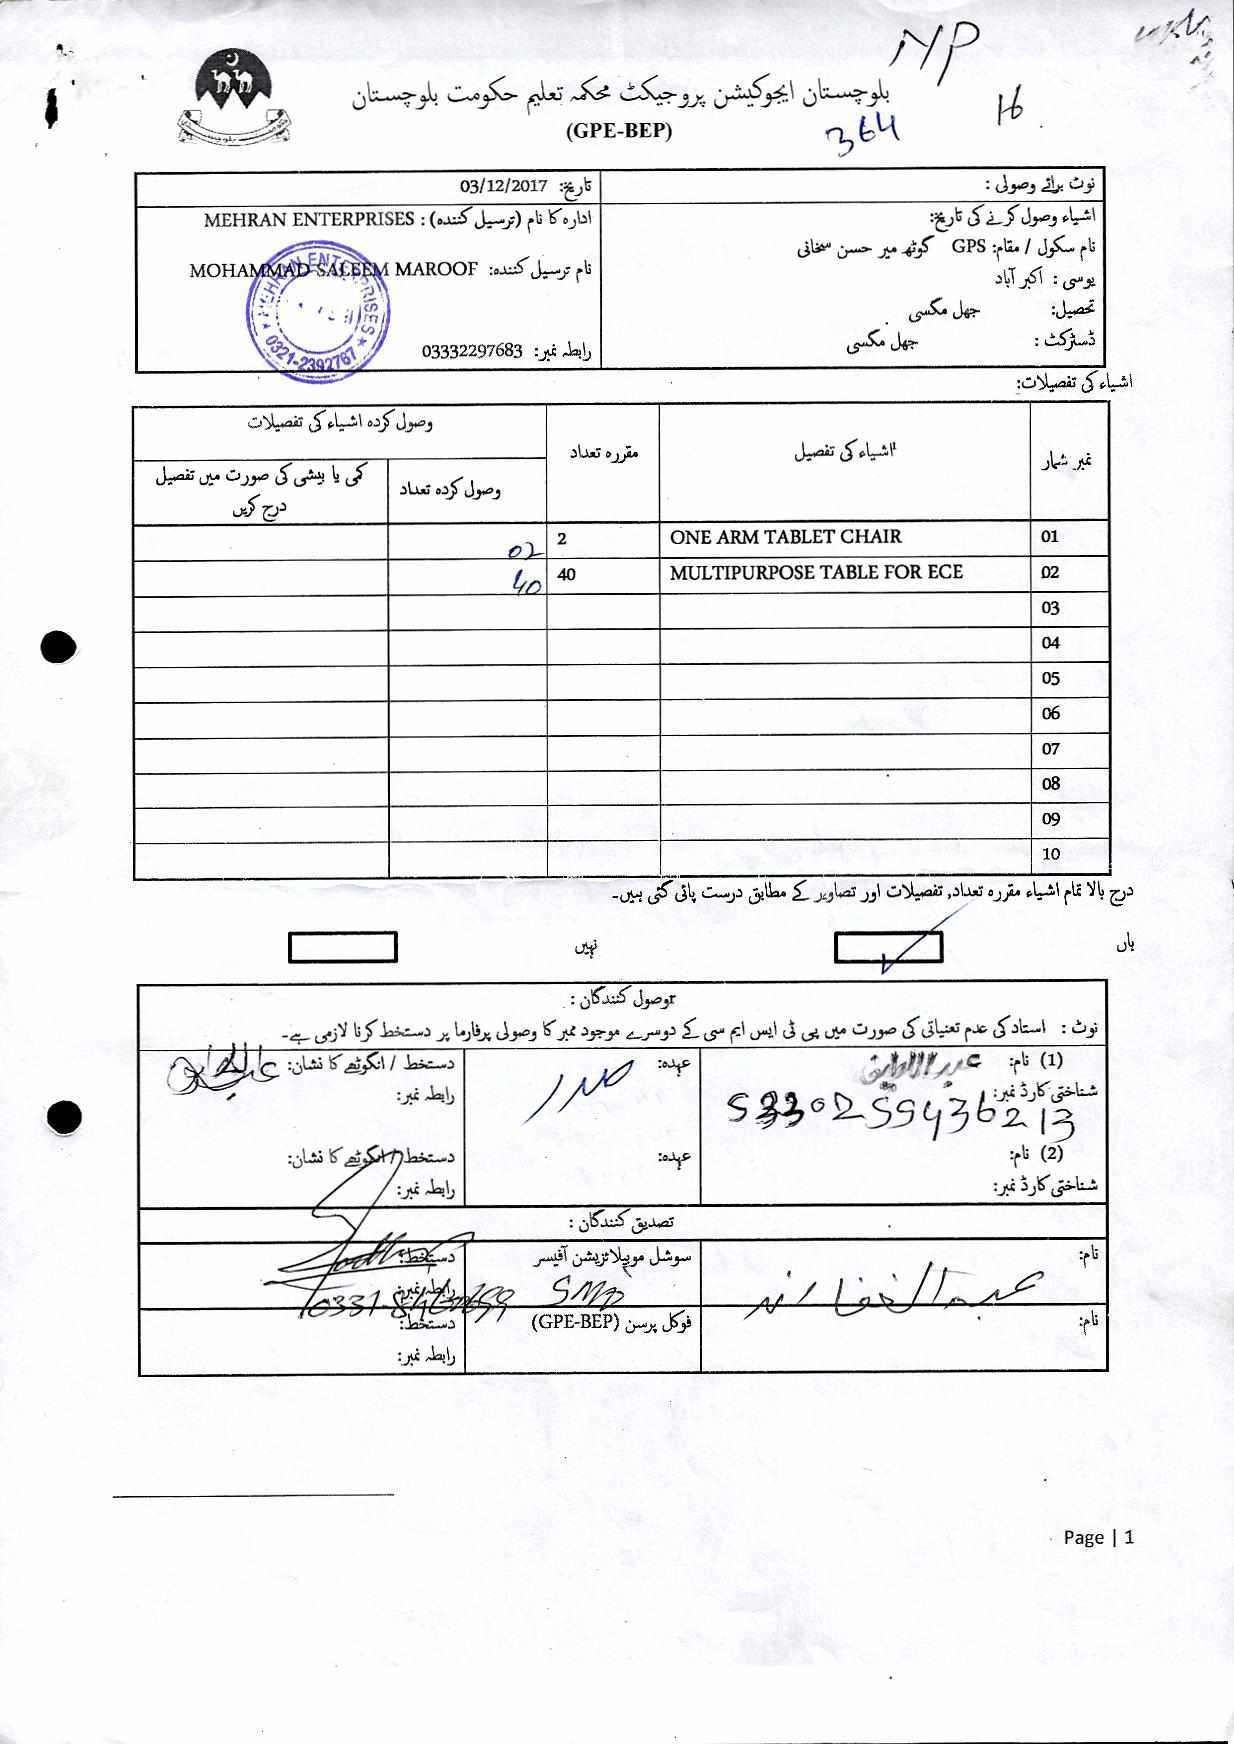 NP
16
بلوچستان ایجوکیشن پروجیکٹ محکمہ تعلیم حکومت بلوچستان
(GPE-BEP)
364
نوٹ برائے وصولی :
تاریخ: 03/12/2017
اشیاء وصول کرنے کی تاریخ:
ادارہ کا نام (ترسیل کنندہ) : MEHRAN ENTERPRISES
نام سکول / مقام: GPS گوٹھ میر حسن سخانی
نام ترسیل کنندہ: MOHAMMAD SALEEM MAROOF
یوسی : اکبر آباد
تحصیل: جھل مگسی
ڈسٹرکٹ : جھل مگسی
رابطہ نمبر: 03332297683
MEHRAN ENTERPRISES
0321-2392767
اشیاء کی تفصیلات:
نمبر شمار
اشیاء کی تفصیل
مقررہ تعداد
وصول کردہ اشیاء کی تفصیلات
وصول کردہ تعداد
کمی یا بیشی کی صورت میں تفصیل
درج کریں
01 ONE ARM TABLET CHAIR 2 02
02 MULTIPURPOSE TABLE FOR ECE 40 40
03
04
05
06
07
08
09
10
درج بالا تمام اشیاء مقررہ تعداد, تفصیلات اور تصاویر کے مطابق درست پائی گئی ہیں۔
ہاں
نہیں
وصول کنندگان :
نوٹ : استاد کی عدم تعنیاتی کی صورت میں پی ٹی ایس ایم سی کے دوسرے موجود ممبر کا وصولی پرفارما پر دستخط کرنا لازمی ہے۔
(1) نام: عبداللطیف
عہدہ: صدر
دستخط / انگوٹھے کا نشان:
شناختی کارڈ نمبر: 5330259436213
رابطہ نمبر:
(2) نام:
عہدہ:
دستخط / انگوٹھے کا نشان:
شناختی کارڈ نمبر:
رابطہ نمبر:
تصدیق کنندگان :
نام:
سوشل موبیلائزیشن آفیسر
دستخط:
عبدالغفار
SMO
رابطہ نمبر:
نام:
فوکل پرسن (GPE-BEP)
دستخط:
رابطہ نمبر:
Page | 1